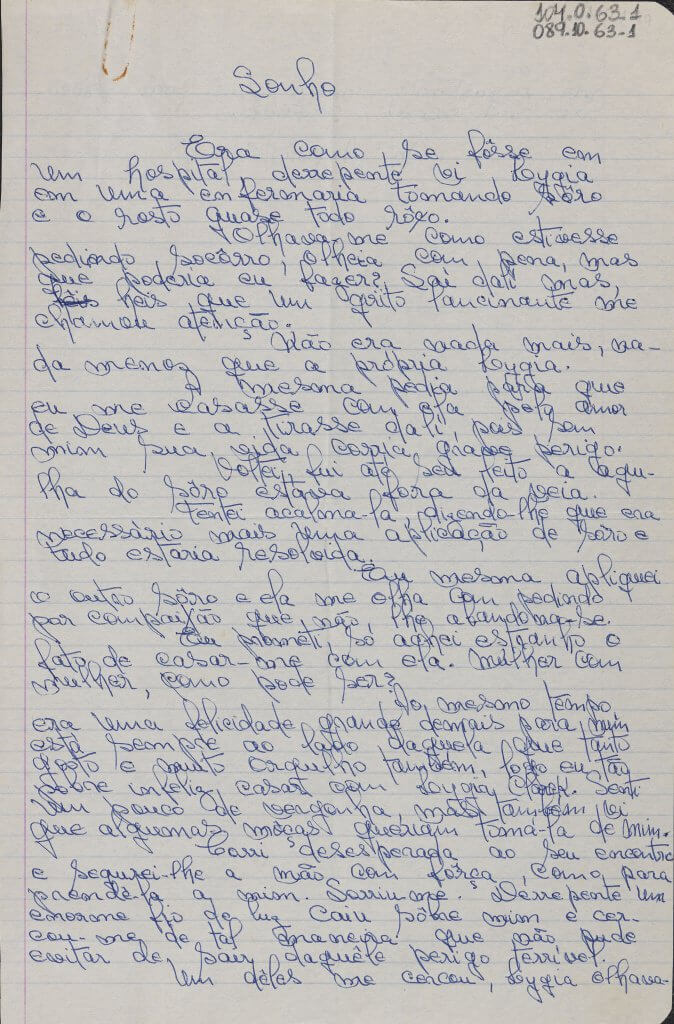 104.0.63.1
089.10.63-1
Sonho
Era como se fôsse em
um hospital, derrepente vi Lygia
em uma enfermaria tomando sôro
e o rosto quase todo rôxo.
Olhava-me como estivesse
pedindo socôrro, olheia com pena, mas
que poderia eu fazer? Sai dali mas,
heis que um grito lancinante me
chamou atenção.
Não era nada mais, na-
da menos que a própria Lygia.
A mesma pedia para que
eu me casasse com ela pelo amor
de Deus e a tirasse dali, pois sem
mim sua vida corria grave perigo.
Voltei, fui até seu leito a agu-
lha do sôro estava fora da veia.
Tentei acalma-la dizendo-lhe que era
necessário mais uma aplicação de sôro e
tudo estaria resolvida.
Eu mesma apliquei
o outro sôro e ela me olha com pedindo
por compaixão que não, lhe abandona-se.
Eu prometi, só achei estranho o
fato de casar-me com ela. Mulher com
mulher, como pode ser?
Ao mesmo tempo,
era uma felicidade grande demais para mim
está sempre ao lado daquela que tanto
gosto e muito orgulho também, logo eu tão
pobre infeliz casar com Lygia Senti
um pouco de vergonha, mas também vi
que algumas moças queriam tomá-la de mim.
Corri desesperada ao seu encontro
e segurei-lhe a mão com força, como para
prendê-la a mim. Sorriu-me. Derrepente um
enorme fio de luz caiu sôbre mim e cer-
cou-me de tal maneira que não pude
evitar de sair daquêle perigo terrível.
Um dêles me cercou, Lygia olhava-